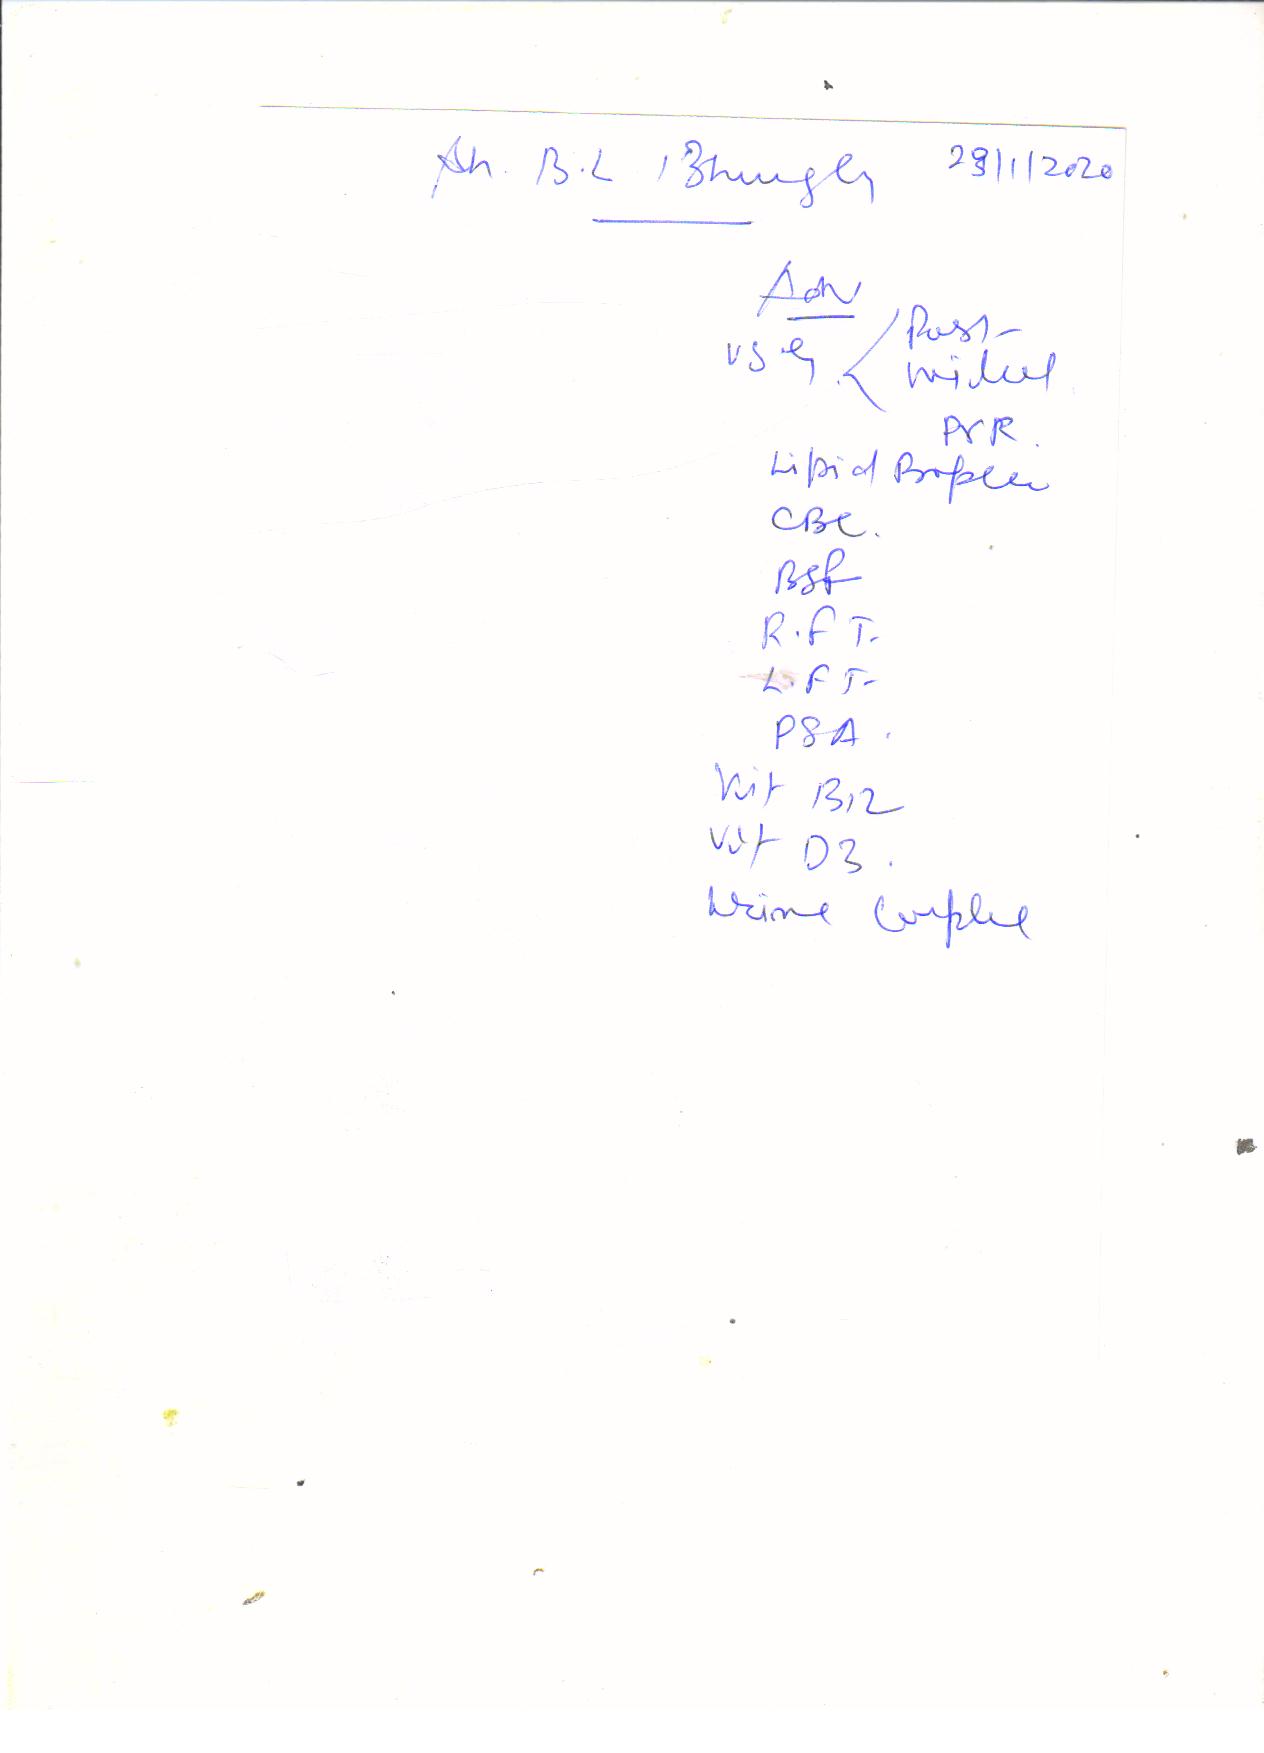 Sh. B.L 28/1/2020
Adv
USG < Post-
void
PVR.
Lipid Profile
CBC.
BSF
R.F T.
L.F T-
PSA.
Vit B12
Vit D3.
Urine Complete